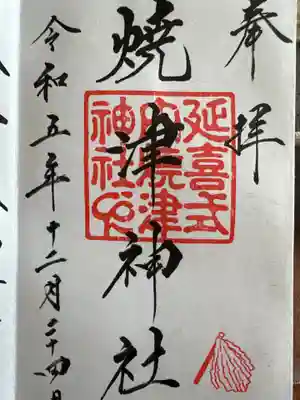 奉拝
焼津神社
延喜式
神社
令和五年十二月二十四日